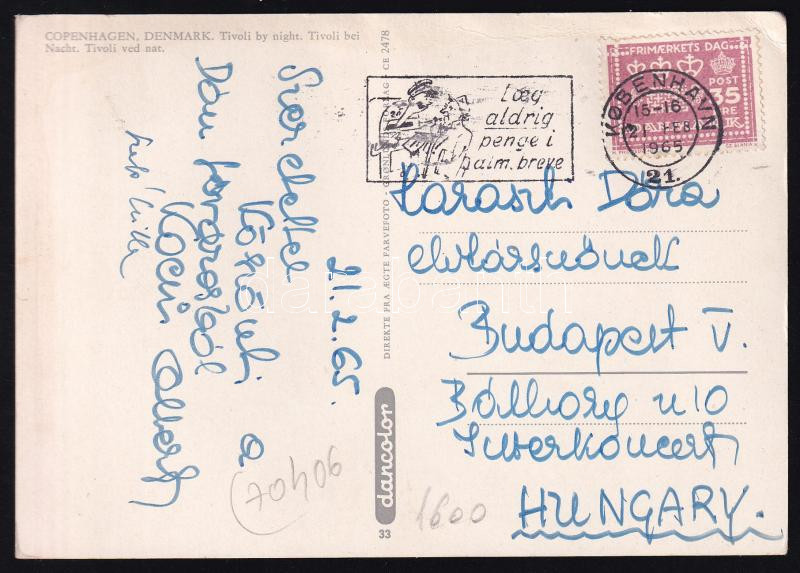 COPENHAGEN, DENMARK. Tivoli by night. Tivoli bei
Nacht. Tivoli ved nat.
21.2.65.
Szeretettel
köszönti a
Dán fővárosból
Kocsis Albert
DIREKTE FRA ÆGTE FARVEFOTO
CE 2478
dancolor
33
Læg
aldrig
penge i
alm. breve
FRIMÆRKETS DAG
POST
35
ØRE
DANMARK
KØBENHAVN
15-16
FEB
1965
21.
Harasch Dóra
elvtársnőnek
Budapest V.
Interkoncert
HUNGARY.
1600
70406
darabanth